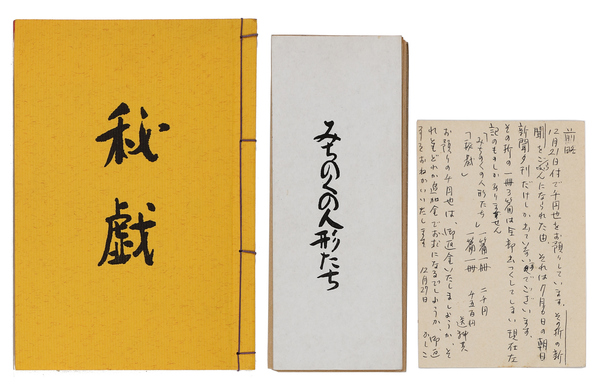 秘戯
みちのくの人形たち
前略
12月21日付で千円也をお預りしています。その折の新
聞をごらんになられた由、それは7月6日の朝日
新聞夕刊だけしか出ていないはずでございます。
その折の一冊3篇は全部なくしてしまい現在左
記のものしかありません
「みちのくの人形たち」 一篇一冊 二千円
「秘戯」 一篇一冊 千五百円 送料共
お預りの千円也は、御返金いたしましょうか、そ
れともどれか追加金でおおくりになるでしょうか、御返
事をおねがいいたします
12月29日